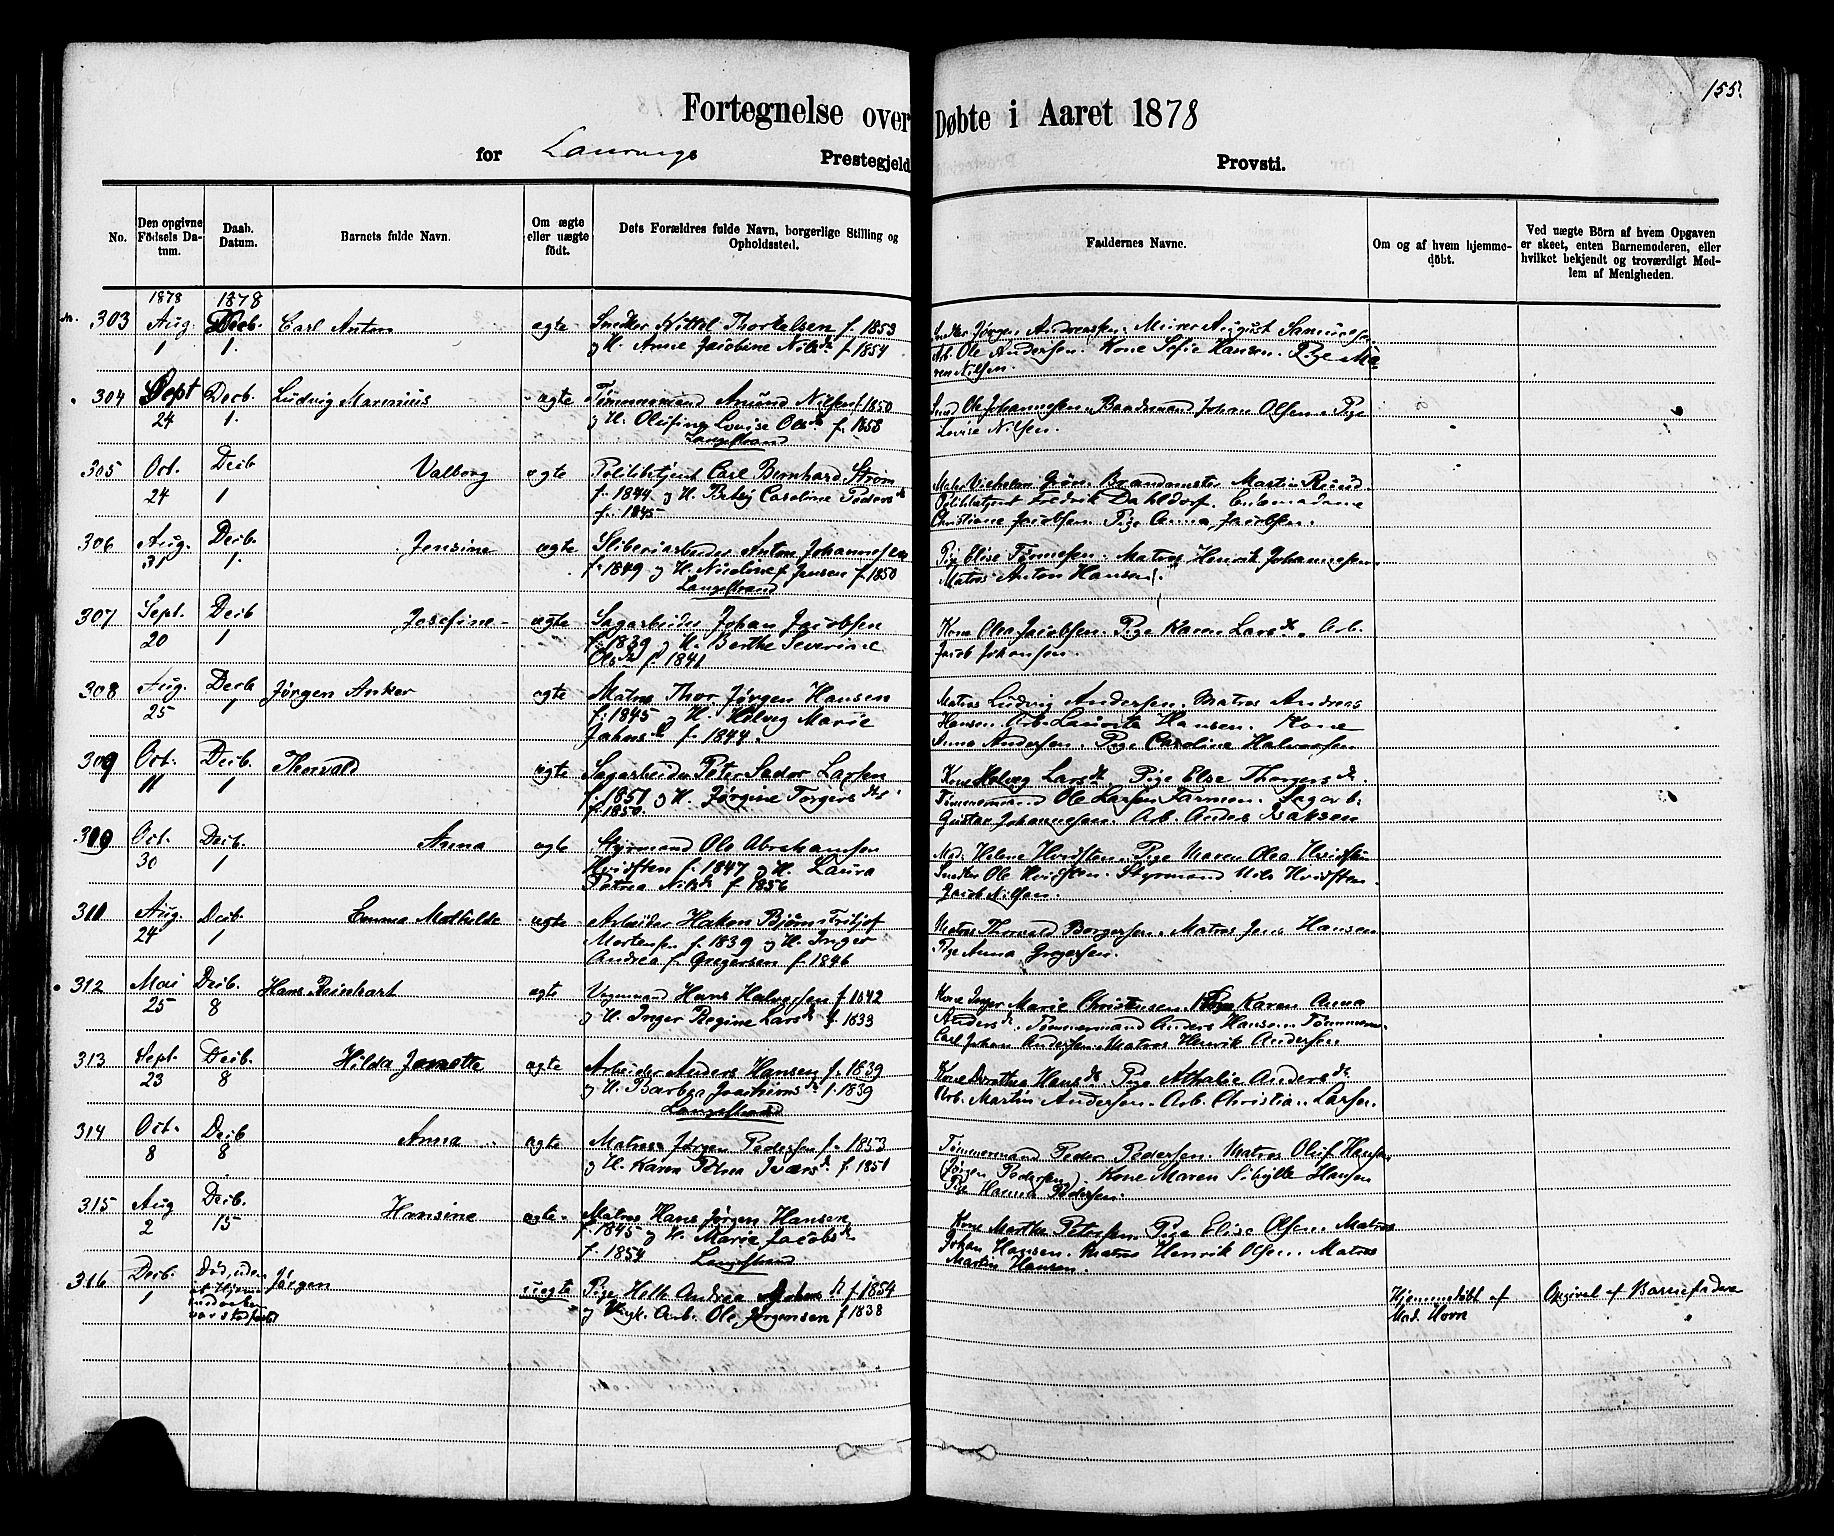 155.
Fortegnelse over Døbte i Aaret 1878
for Laurvigs Prestegjeld Provsti.
No.
Den opgivne Födsels Datum.
Daab. Datum.
Barnets fulde Navn.
Om ægte eller uægte födt.
Dets Forældres fulde Navn, borgerlige Stilling og Opholdssted.
Faddernes Navne.
Om og af hvem hjemmedöbt.
Ved uægte Börn af hvem Opgaven er skeet, enten Barnemoderen, eller hvilket bekjendt og troværdigt Medlem af Menigheden.
1878 1878
303 Aug. 1 Decb. 1. Carl Anton ægte Snedker Kittel Thorkelsen f. 1853
og H. Anne Jacobine Nilsd. f. 1854
Snedker Jørgen Andreassen. Murer August Samuelsen.
Arb. Ole Andersen. Kone Sofie Hansen. Pige Ma-
ren Nilsen.
304 Sept 24 Decb. 1. Ludvig Marinius ægte Tømmermand Anund Nilsen f. 1850
og H. Olufine Lovise Olsd. f. 1858
Langestrand
Ole Johannessen. Baadsmand Johan Olsen. Pige
Lovise Nilsen.
305 Oct. 24 Decb 1 Valborg ægte Politibetjent Carl Bernhard Strøm
f. 1844 og H. Betsy Caroline Peders d.
f. 1845
Grøn. Brandmester Martin Ruud.
Politibetjent Fredrik Dahldorf. Enkemadame
Christiane Jacobsen. Pige Anna Jacobsen.
306 Aug. 31 Decb. 1. Jensine ægte Sliberiarbeider Anton Johannessen
f. 1849 og H. Nicoline f. Jensen f. 1850
Langestrand
Pige Elise Tønnesen. Matros Henrik Johannesen.
Matros Anton Hansen.
307 Sept. 20 Decb 1 Josefine ægte Sagarbeider Johan Jacobsen
f. 1839 og H. Berthe Severine
Olsd. f. 1841
Kone Olea Jacobsen. Pige Karen Larsd. Arb.
Jacob Johansen.
308 Aug. 25 Decb 1 Jørgen Anker ægte Matros Thor Jørgen Hansen
f. 1845 og H. Helvig Marie
Johnsd. f. 1844.
Matros Ludvig Andersen. Matros Andreas
Hansen. Arb. Laurits Hansen. Kone
Anna Andersen. Pige Caroline Halvorsen
309 Oct. 11 Decb. 1 Thorvald ægte Sagarbeider Peter Sador Larsen
f. 1851 og H. Jørgine Torgersd.
f. 1850.
Kone Helveg Larsd. Pige Else Thorgersd.
Tømmermand Ole Larsen Farmen. Sagarb.
Gustav Johannesen. Arb. Anders Isaksen
310 Oct. 30 Decb. 1 Anna ægte Styrmand Ole Abrahamsen
Hvidsten f. 1847 og H. Laura
Petrea Nilsd. f. 1856
Mad. Helene Hvidsten. Pige Maren Olea Hvidsten
Snedker Ole Hvidsten. Styrmand Nils Hvidsten.
Jacob Nilsen.
311 Aug. 24 Decb. 1 Emma Mathilde ægte Arbeider Hakon Bjørn Fritjof
Mortensen f. 1839 og H. Inger
Andrea f. Gregersen f. 1846
Matros Thorvald Borgersen. Matros Jens Hansen
Pige Anna Gregersen.
312 Mai 25 Decb. 8 Hans Reinhart ægte Vognmand Hans Halvorsen f. 1842
og H. Inger Regine Larsd. f. 1833
Kone Inger Marie Christensen. Pige Karen Anna
Andersd. Tømmermand Anders Hansen. Tømmerm.
Carl Johan Andersen. Matros Henrik Andersen.
313 Sept. 23 Decb. 8 Hilda Janette ægte Arbeider Anders Hansen f. 1839
og H. Barbra Joachimsd. f. 1839
Langestrand
Kone Dorothea Hansd. Pige Athalie Andersd.
Arb. Martin Andersen. Arb. Christian Larsen.
314 Oct. 8 Decb 8 Anna ægte Matros Jørgen Pedersen f. 1853
og H. Karen Petrea Iversd. f. 1851
Tømmermand Peder Pedersen. Matros Oluf Hansen
(Jørgen Pedersen). Kone Maren Sibylle Hansen
Pige Hanna Pedersen.
315 Aug 2 Decb. 15 Hansine ægte Matros Hans Jørgen Hansen
f. 1845 og H. Marie Jacobsd.
f. 1854 Langestrand
Kone Marthe Petersen. Pige Elise Olsen. Matros
Johan Hansen. Matros Henrik Olsen. Matros
Martin Hansen.
316 Decb. 1 Død, uden at Hjemmedaaben var stadfæstet Jørgen uægte Pige Helle Andrea f. 1854
og Ungk. Arb. Ole Jørgensen f 1838
Hjemmedöbt af
Mad. Horn
Opgivet af Barnefaderen